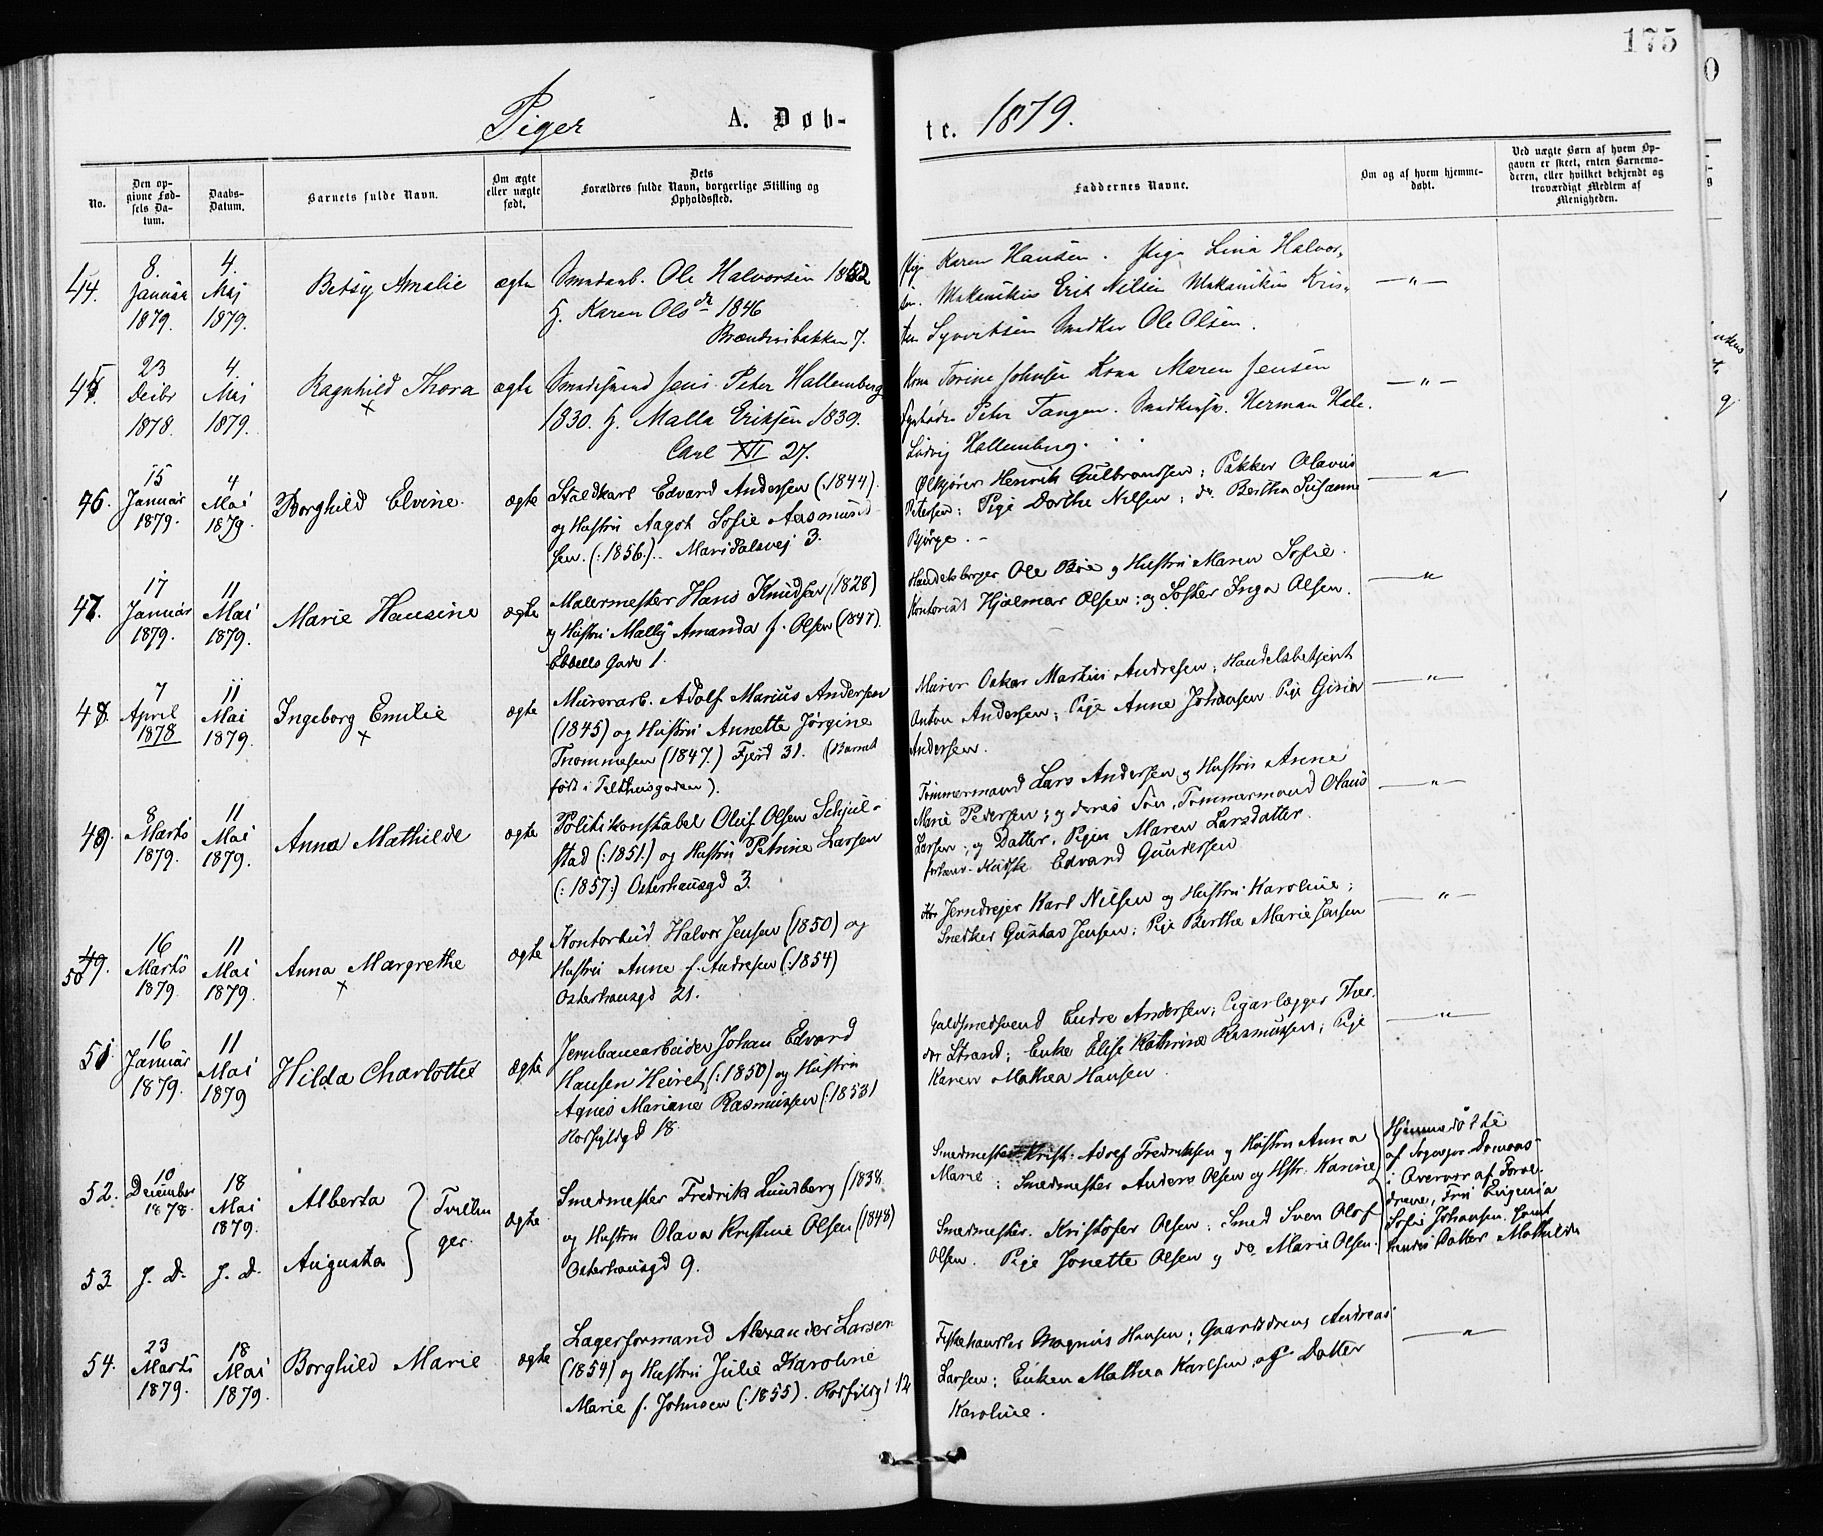 175
Piger A. Døb- te. 1879.
No.
Den op-
givne Fød-
sels Da-
tum.
Daabs-
Datum.
Barnets fulde Navn.
Om ægte
eller uægte
født.
Dets
Forældres fulde Navn, borgerlige Stilling og
Opholdssted.
Faddernes Navne.
Om og af hvem hjemme-
døbt.
Ved uægte Børn af hvem Op-
gaven er skeet, enten Barnemo-
deren, eller hvilket bekjendt og
troværdigt Medlem af
Menigheden.
44.
8.
Januar
1879.
4.
Maj
1879.
Betsy Amalie
ægte
Ole Halvorsen 1852
H. Karen Olsdr 1846
7.
Pige Karen Hansen. Pige Lina Halvor-
sen. Mekanikus Erik Nilsen Mekanikus Kris-
ten Syvertsen Snedker Ole Olsen.
— " —
45.
23
Decbr
1878.
4.
Maj
1879.
Ragnhild Thora
×
ægte
Jens Peter Hallemberg
1830. H. Malla Eriksen 1839.
Carl XII 27.
Kona Torine Johnsen Kona Maren Jensen
Peter Tangen. Herman
Ludvig Hallemberg.
— " —
46.
15
Januar
1879.
4
Mai
1879.
Borghild Elvine.
ægte
Staldkarl Edvard Andersen (:1844).
og Hustru Aagot Sofie Aasmund-
sen. (:1856.).. Maridalsvej 3.
Ølkjører Henrik Gulbrandsen; Pakker Olavus
Petersen; Pige Dorthe Nilsen; do. Bertha Susanne
Bjørge. -
— " —
47.
17
Januar
1879.
11
Mai
1879.
Marie Hansine
ægte
Malermester Hans Knudsen (1828)
og Hustru Mally Amanda f. Olsen (1847).
Ebbells Gade 1.
Handelsborger Ole Bøe og Hustru Maren Sofie.
Kontorist Hjalmar Olsen; og Søster Inga Olsen.
— " —
48.
7
April
1878
11
Mai
1879.
Ingeborg Emilie
×
ægte
Murerarb. Adolf Marius Andersen
(1845) og Hustru Annette Jørgine
Trommesen (1847.) Fjerd 31. (Barnet
født i Telthusgaden).
Murer Oskar Martin Andresen; Handelsbetjent
Anton Andersen; Pige Anne Johansen Pige Gina
Andersen.
— " —
49.
8
Marts
1879.
11
Mai
1879.
Anna Mathilde
ægte
Politikonstabel Oluf Olsen Schjul-
stad (:1851.) og Hustru Petrine Larsen
(:1857:) Osterhausgd 3.
Tømmermand Lars Andersen og Hustru Anne
Marie Pedersen; og deres Søn, Tømmermand Olaus
Larsen; og Datter, Pigen Maren Larsdatter.
Kudsk Edvard Gundersen
— " —
49.
50
16
Marts
1879.
11
Mai
1879.
Anna Margrethe
×
ægte
Kontorbud Halvor Jensen (1850) og
Hustru Anne f. Andresen (:1854)
Osterhausgd 21.
Jerndrejer Karl Nilsen og Hustru Karoline;
Snedker Gustav Jensen; Pige Berthe Marie Jensen
— " —
51
16
Januar
1879.
11
Mai
1879
Hilda Charlotte
ægte
Jernbanearbeider Johan Edvard
Hansen Heiret (:1850) og Hustru
Agnes Mariane Rasmussen (:1853)
Rosfyldgd 18.
Guldsmedsvend Endre Andersen; Cigarlægger Theo-
dor Strand; Enke Elise Kathrine Rasmussen; Pige
Karen Mathea Hansen.
— " —
52.
10
December
1878.
18
Mai
1879.
Alberta
Tvillin
ger.
ægte
Smedmester Fredrik Lundberg (1838.
og Hustru Olava Kristine Olsen (1848)
Osterhausgd 9.
Smedmester Krist. Adolf Fredriksen og Hustru Anna
Marie; Smedmester Anders Olsen og Hstr. Karine
Smedmester. Kristofer Olsen; Smed Sven Olof
Olsen. Pige Jonette Olsen og do. Marie Olsen.
Hjemmedøbte
af Sogespr.
i Overvær af Foræl-
drene, Fru Eugenia
Sofie Johansen. samt
hendes Datter Mathilde
53.
f. d.
f. d.
Augusta
54.
23
Marts
1879.
18
Mai
1879.
Borghild Marie
ægte
Lagerformand Alexander Larsen
(1854) og Hustru Julie Karoline
Marie f. Johnsen (:1855). 12
Fiskehandler Magnus Hansen; Gaardsdreng Andreas
Larsen; Enken Mathea Karlsen og Datter
Karoline.
— " —